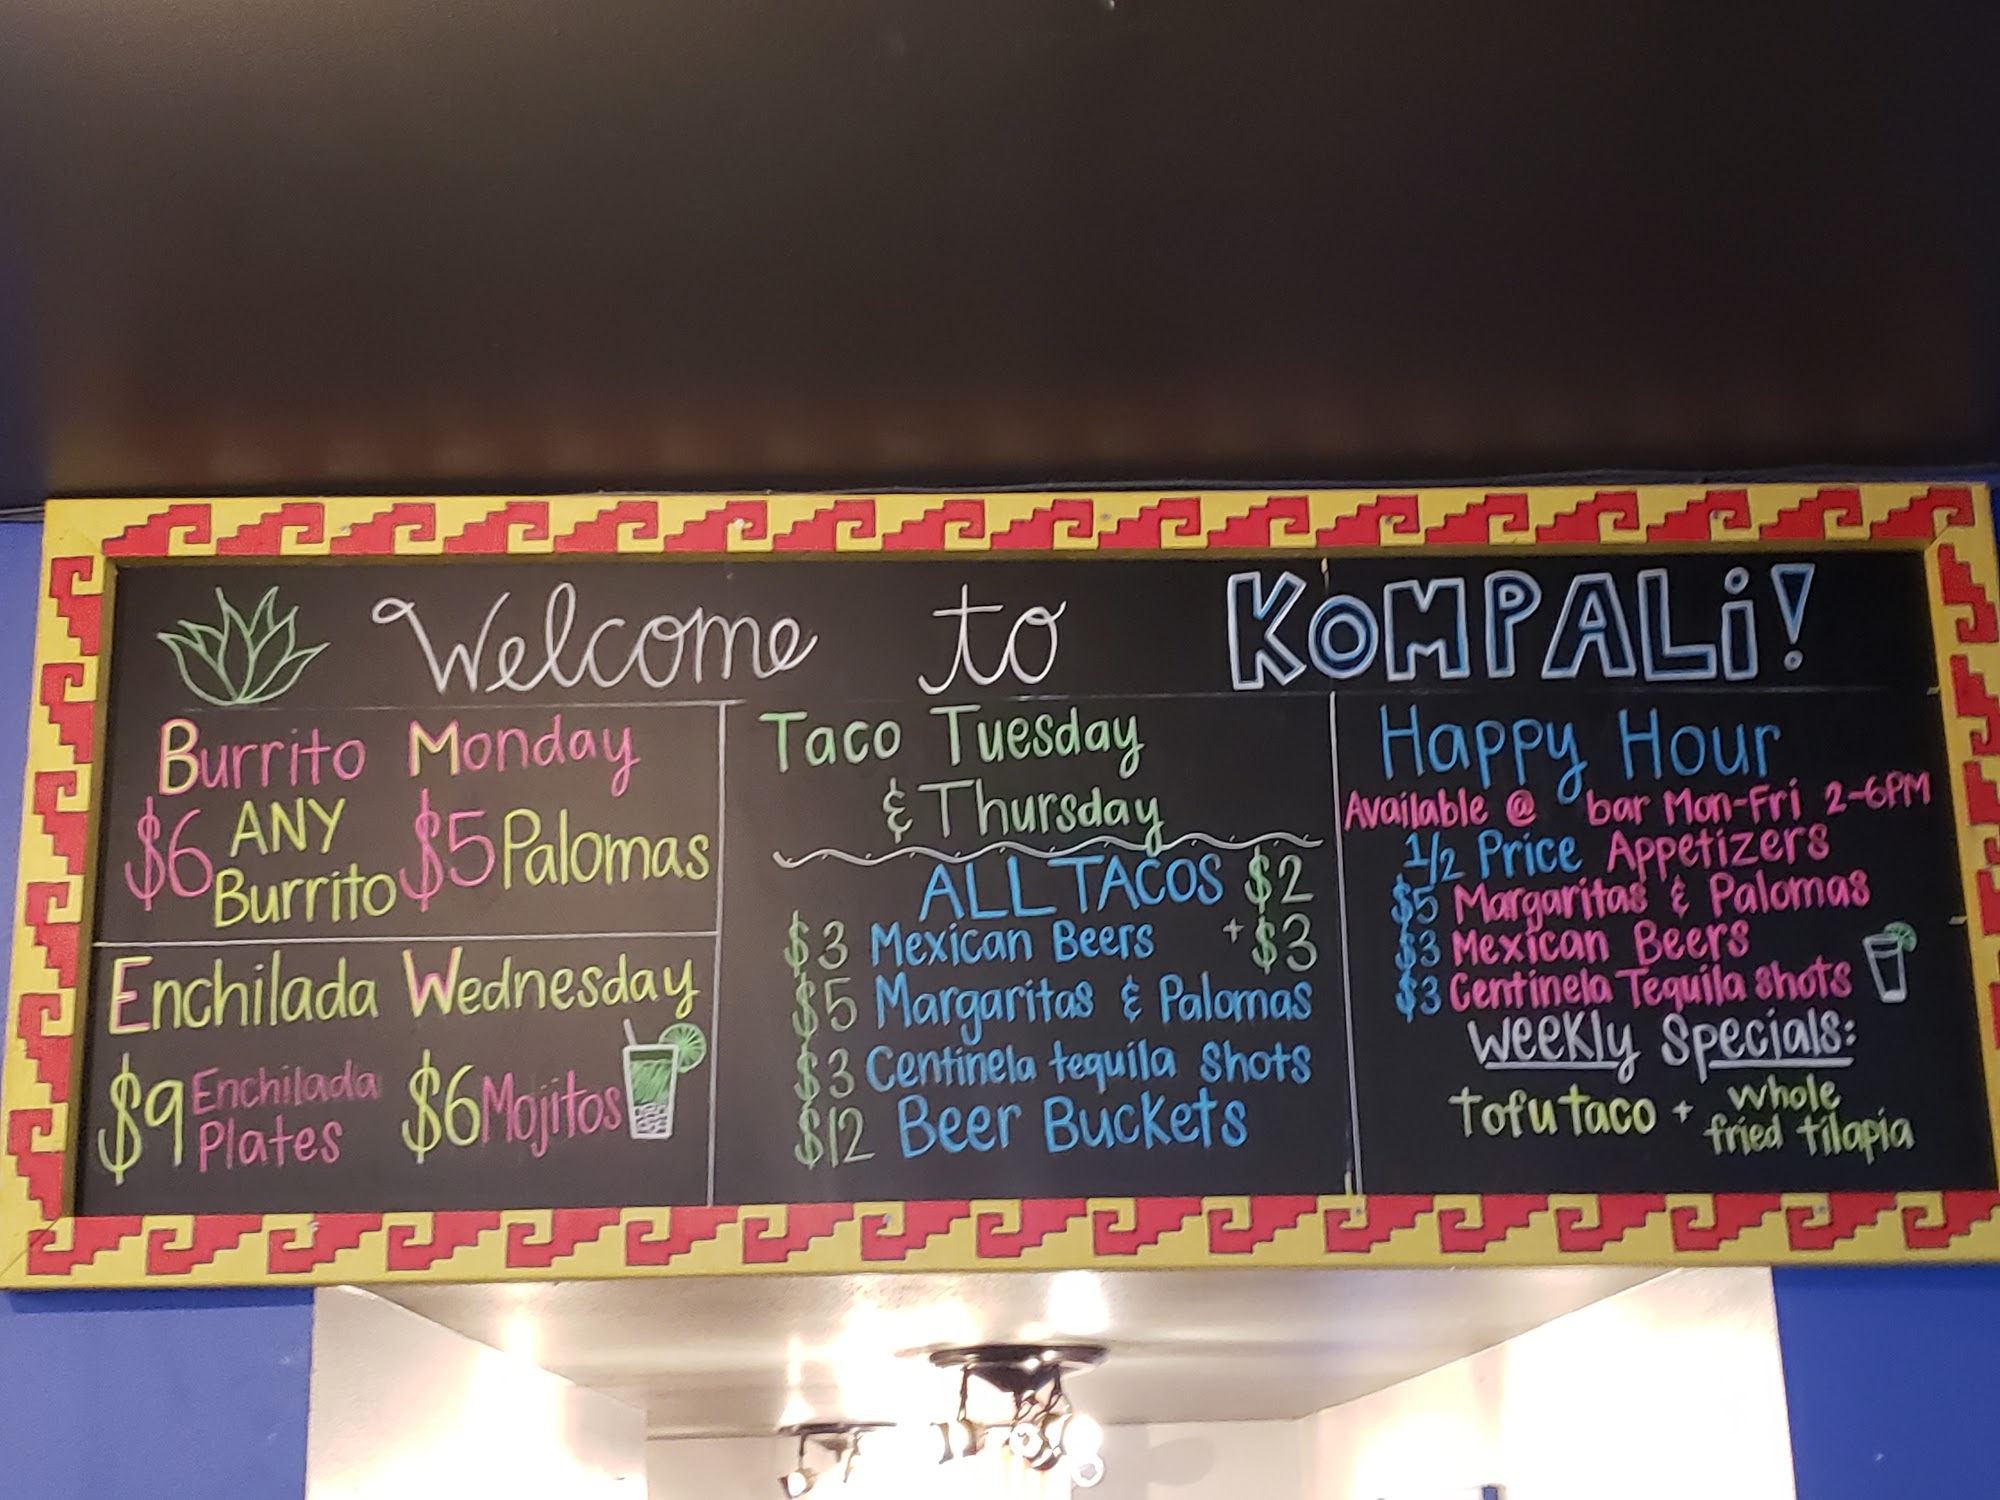 Welcome to KOMPALi!
Burrito Monday
$6 ANY Burrito $5 Palomas
Enchilada Wednesday
$9 Enchilada Plates $6 Mojitos
Taco Tuesday
& Thursday
ALL TACOS $2
+ $3
$3 Mexican Beers
$5 Margaritas & Palomas
$3 Centinela tequila shots
$12 Beer Buckets
Happy Hour
Available @ bar Mon-Fri 2-6PM
1/2 Price Appetizers
$5 Margaritas & Palomas
$3 Mexican Beers
$3 Centinela Tequila shots
Weekly Specials:
tofu taco + whole
fried tilapia